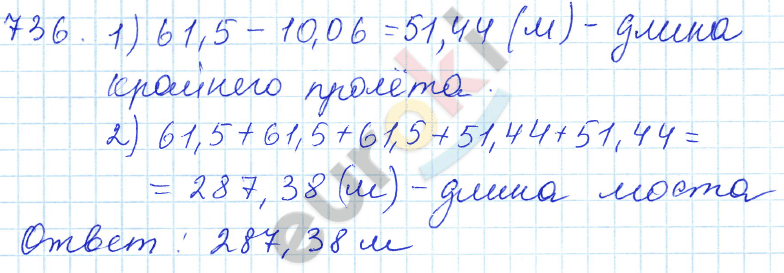 736. 1) 61,5 - 10,06 = 51,44 (м) - длина
крайнего пролёта.
2) 61,5 + 61,5 + 61,5 + 51,44 + 51,44 =
= 287,38 (м) - длина моста
Ответ: 287,38 м
euroki